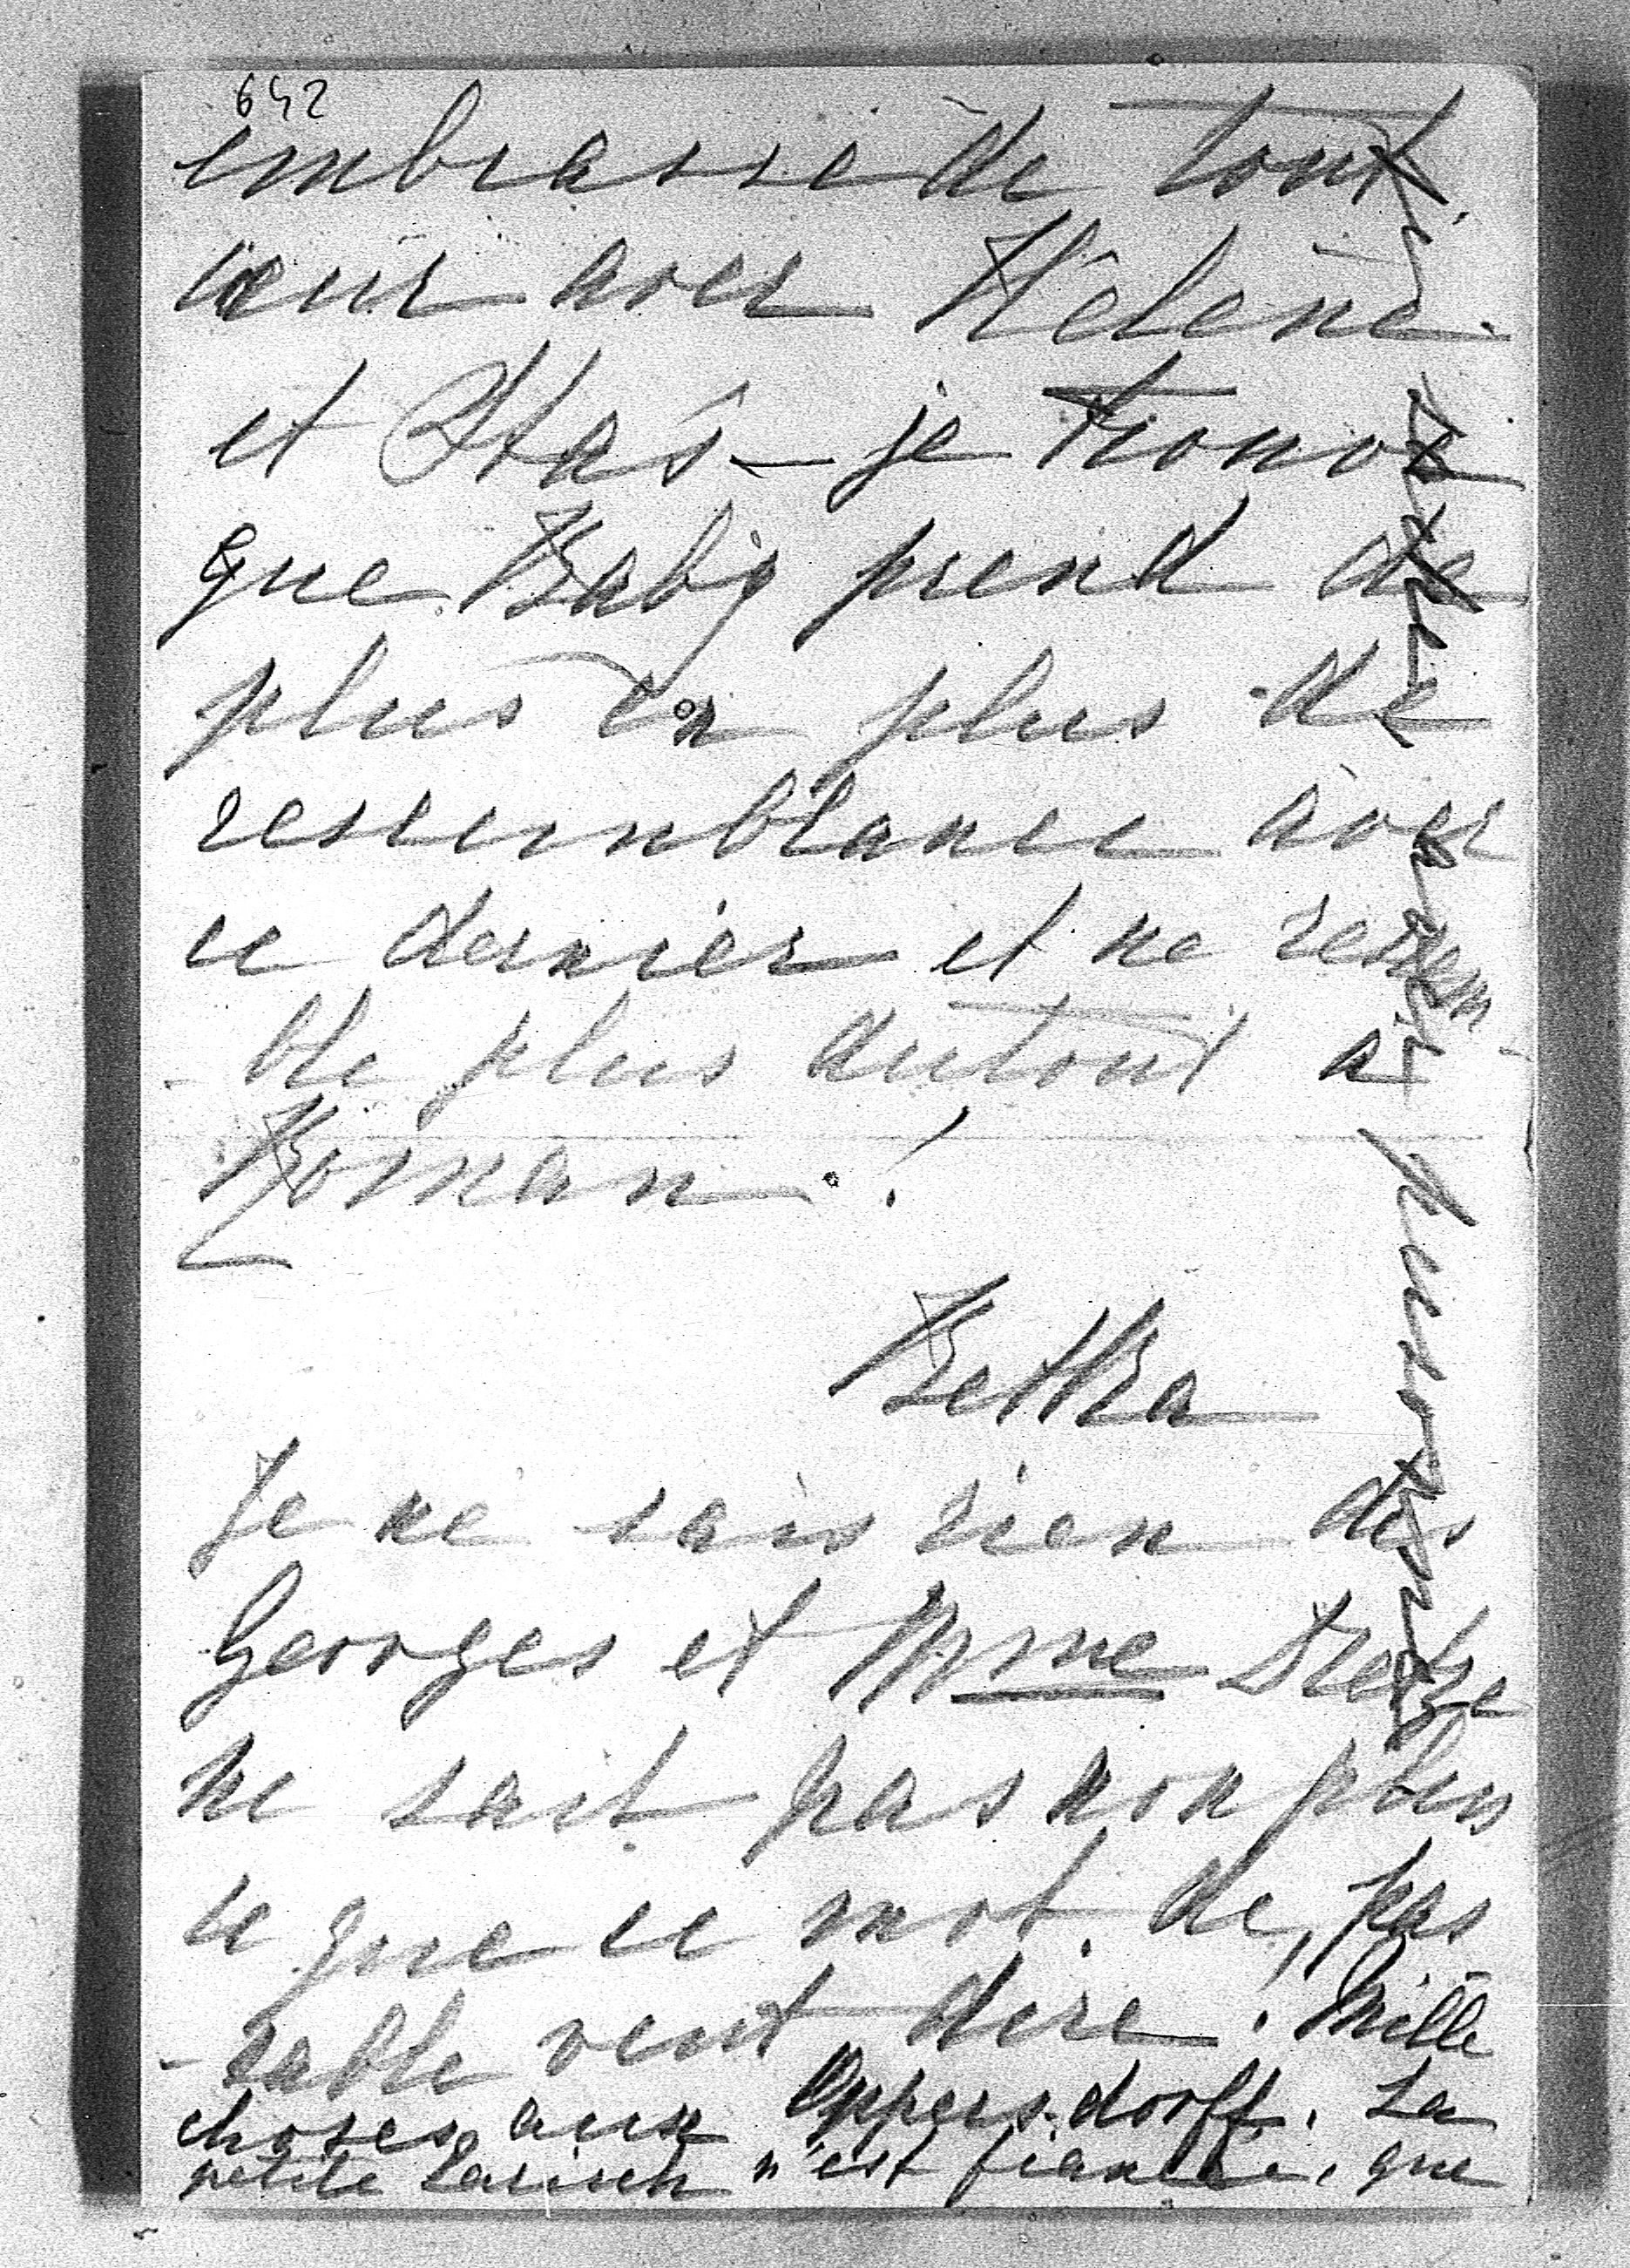 642
embrasse de tout
cœur avec Hélène
et Staś — je trouve
que Baby prend de
plus en plus de
ressemblance avec
ce dernier et ne ressem
- ble plus du tout à
Roman !
Bettka
Je ne sais rien des
Georges et Mme
ne sait pas non plus
ce que ce mot de
veut dire ! Mille
choses aux Oppersdorff. La
petite Larisch n'est fiancée, que